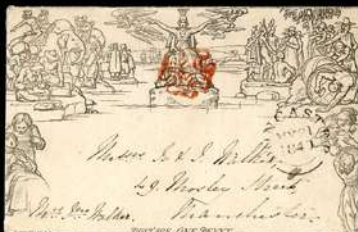 EAST
1841
Messrs J. & J. Walker
49 Mosley Street
Manchester
Mrs Jno Walker
POSTAGE ONE PENNY